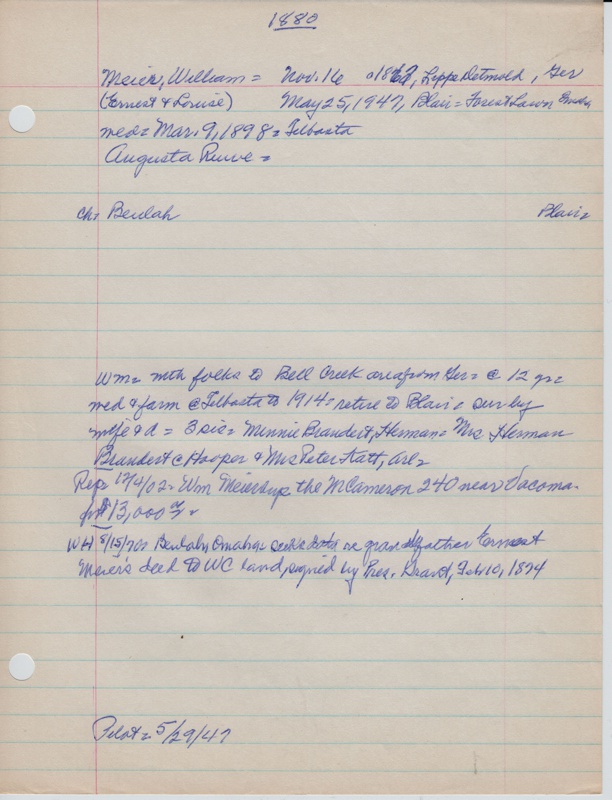 1880
Meier, William = Nov. 16 1862, Lippe Detmold, Ger
(Ernest & Louise) May 25, 1947, Blair = Forest Lawn
med = Mar. 9, 1898 = Telbasta
Augusta Ruwe =
Ch: Beulah Blair =
Wm = with folks to Bell Creek area from Ger = @ 12 yr =
med & farm @ Telbasta to 1914 = retire to Blair = sur by
wife & d = 3 sis = Minnie Brandert, Herman = Mrs Herman
Brandert @ Hooper & Mrs Peter Katt, Arl =
Rep = 12/4/02 = Wm Meier buys the McCameron 240 near Vacoma
for $13,000 =
WH 5/15/70 = Beulah, Omaha = seeks data on grandfather Ernest
Meier's deed to WC land, signed by Pres. Grant, Feb 10, 1874
Pilot = 5/29/47